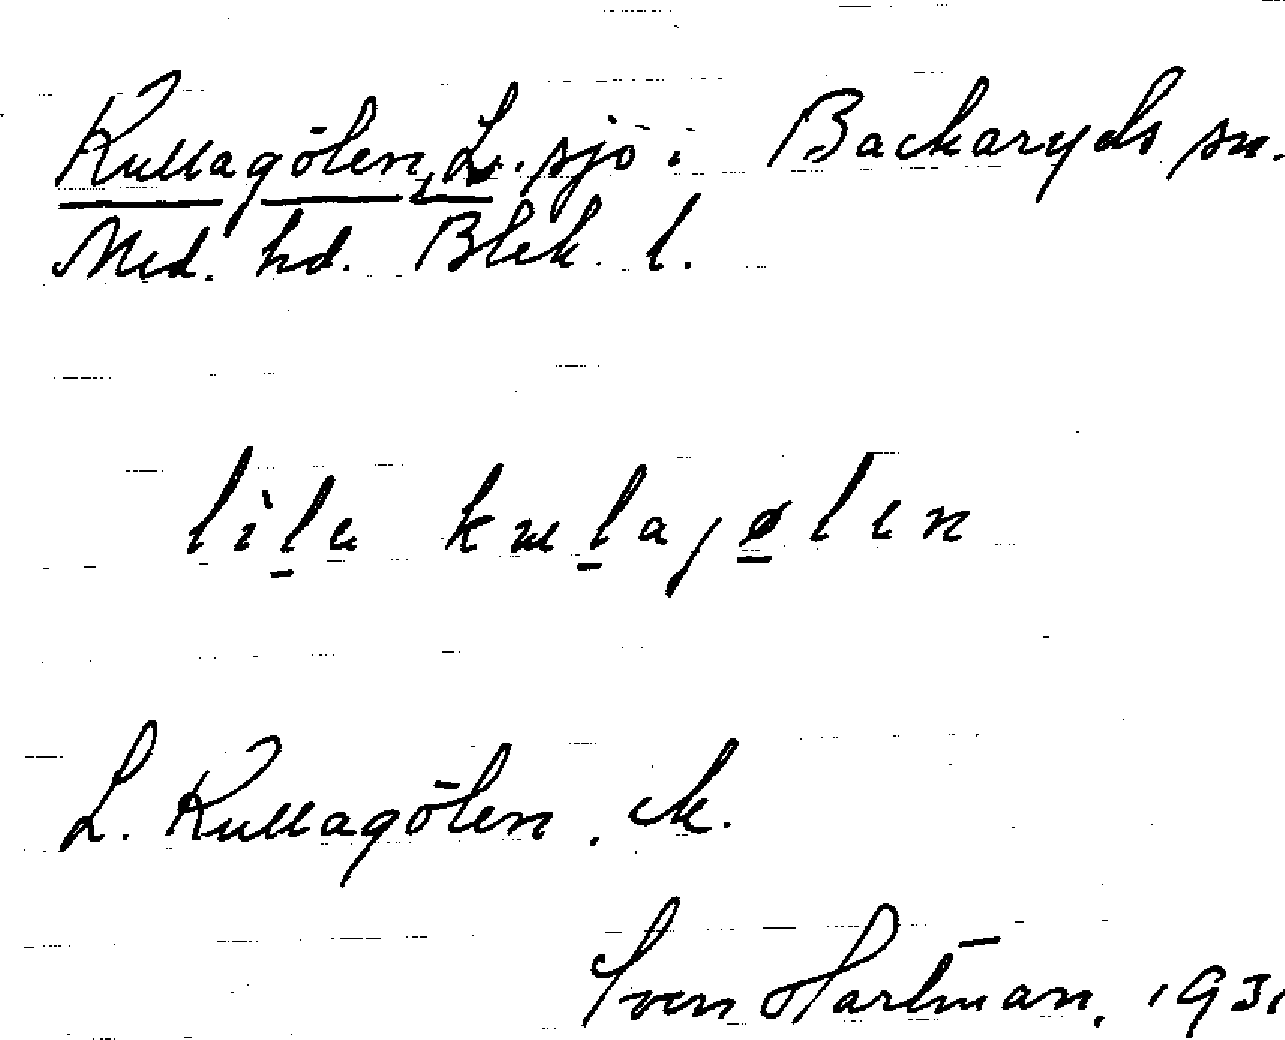 Kullagölen, L. sjö i Backaryds sn.
Med. hd. Blek. l.
lila kulagølen
L. Kullagölen. ek.
Sven Hartman, 1931